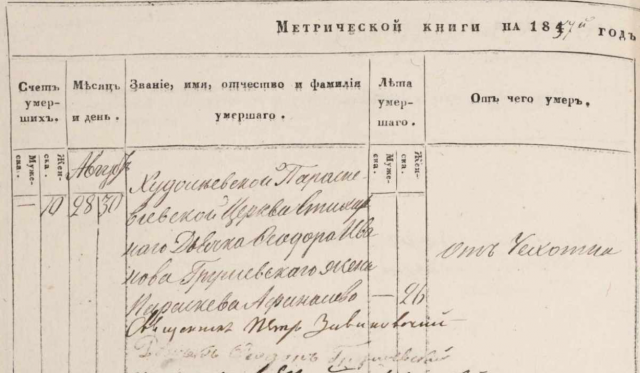 Метрической книги на 1847й годъ
Счетъ умерших.
Мѣсяцъ и день.
Званіе, имя, отчество и фамилія умершаго.
Лѣта умершаго.
Отъ чего умеръ.
Муже-ска.
Жен-ска.
Муже-ска.
Жен-ска.
Августъ
— 10 28 30
Параске
віевской Церкви
наго Дьячка Ѳеодора Ива
нова Грушевскаго жена
Параскева Афанасіево — 26
отъ Чахотки
Священникъ Петр